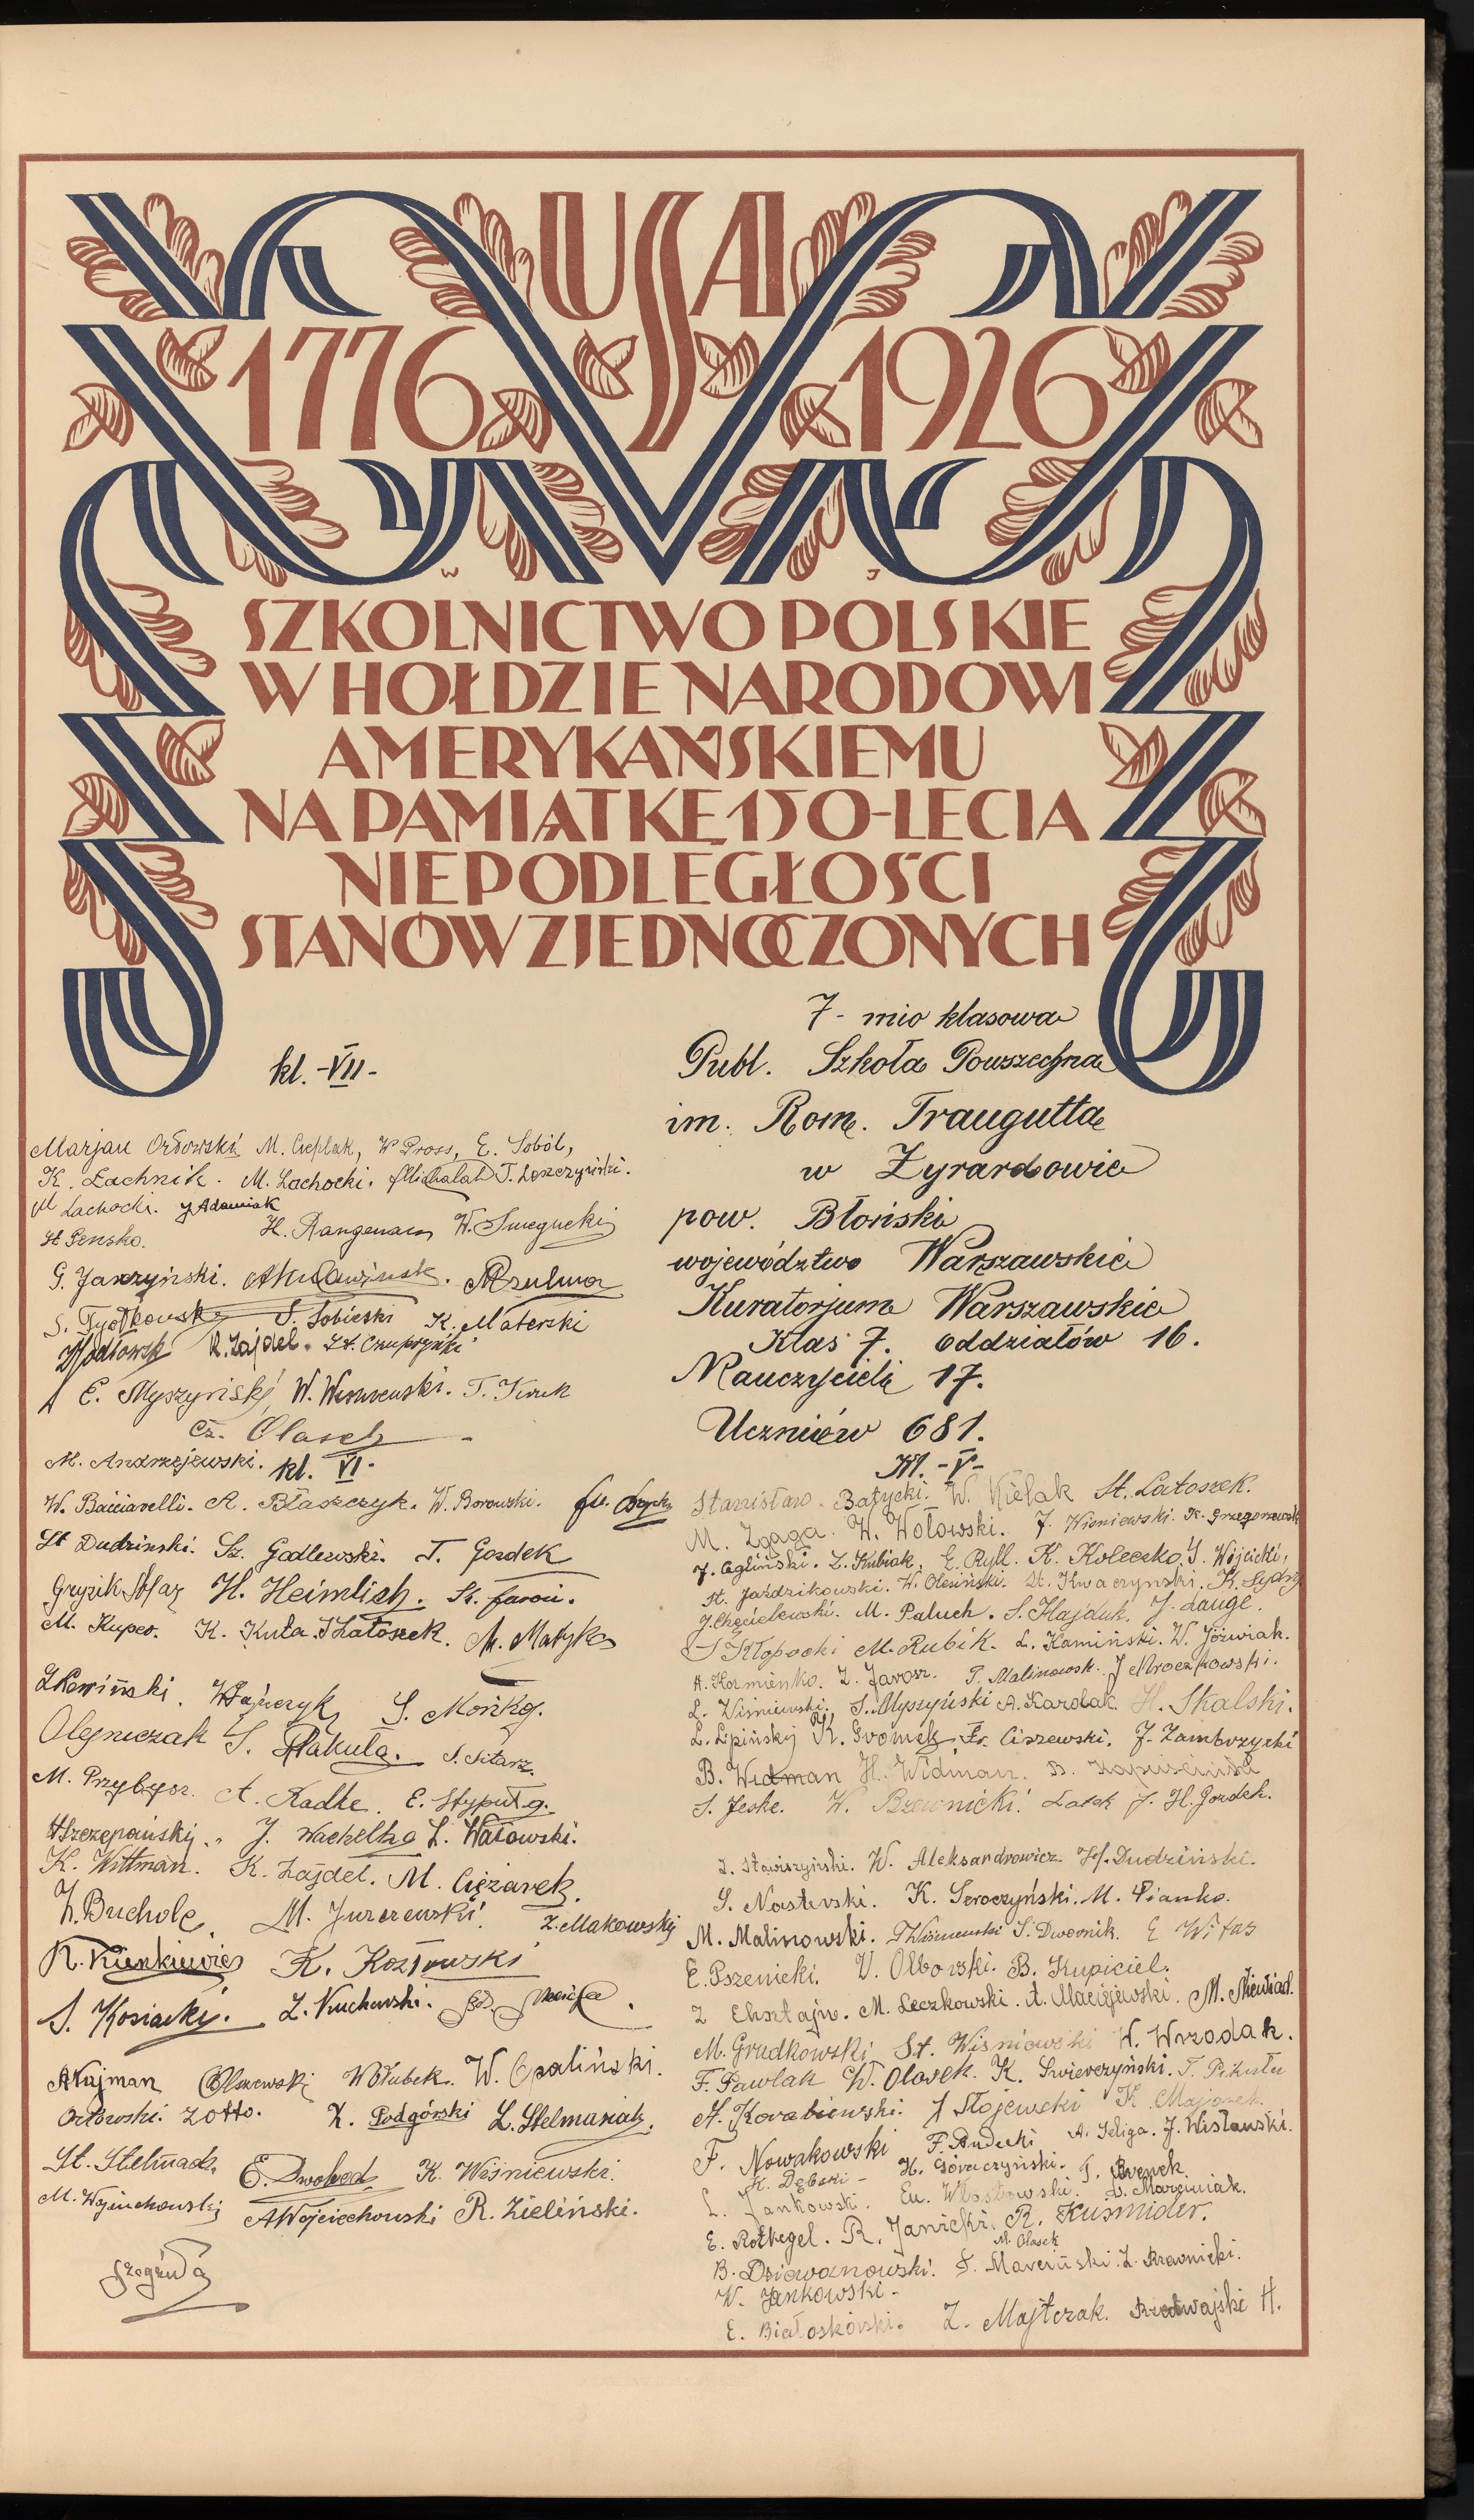 USA
1776 1926
W J
SZKOLNICTWO POLSKIE
W HOŁDZIE NARODOWI
AMERYKAŃSKIEMU
NA PAMIĄTKĘ 150-LECIA
NIEPODLEGŁOŚCI
STANÓW ZJEDNOCZONYCH
7 - mio klasowa
Publ. Szkoła Powszechna
im. Rom. Traugutta
w Żyrardowie
pow. Błoński
województwo Warszawskie
Kuratorjum Warszawskie
Klas 7. oddziałów 16.
Nauczycieli 17.
Uczniów 681.
kl. -VII-
Marjan Orłowski M. Cieplak, W Pross, E. Soból,
K. Lachnik. M. Lachocki. Michalak T. Leszczyński.
M Lachocki. J Adamiak
St Pensko. H. Rangenau W.
G. Jarzyński.
S. S. Sobieski K. Materski
R. Zajdel. St. Czupryński
E. Myszyński, W. T. Kurek
Cz. Olasek
M. Andrzejewski. kl. VI.
W. Bacciarelli. A. Błaszczyk. W. Borowski.
St Dudzinski. Sz. Godlewski. T. Gordek
Gryzik H. Heimlich. St. Jaroń.
M. Kupco. K. Kuta. S Latoszek. M. Matyka
S. Mońka.
Olejniczak S. Pakuła. S. Sitarz.
M. Przybysz. A. Radke. E. Stypuł g.
Szczepański. J. Wachelka L. Watowski.
K. Wittman. K. Zajdel. M. Ciężarek.
Z. Bucholc M. Jurczewski. Z. Makowski
R. Kienkiewicz K. Kozłowski
S. Kosiacki. Z.
A Kujman Olszewski W Ołubek. W. Opaliński.
Orłowski. Zotto. Z. Podgórski L. Stelmasiak.
St. Stelmach. E. K. Wiśniewski.
M. Wojciechowski A Wojciechowski R. Zieliński.
Kl. -V-
Stanisław. Batycki. W. Kielak St. Latoszek.
M. Zgaga. W. Wołowski. J. Wisniewski. K. Grzegorzewski
J. Cegliński. Z. Kubiak. E. Ryll. K. Koleczko. S. Wójcicki.
St. Jaździkowski. W. Olesiński. St. Kwaczynski. K.
J. Chęcielewski. M. Paluch. S. Hajduk. J. Lange.
S Kłopocki M. Rubik. L. Kamiński. W. Jóźwiak.
A. Kormienko. Z. Jarosz. T. Malinowsk. J Mroczkowski.
L. Wiśniewski. S. Myszyński A. Karolak. H. Skalski.
L. Lipiński K. Gromek. Fr. Ciszewski. J. Zambrzycki
B. Widman H. Widman. B. Kapuściński
S. Jeske. W. Brzeznicki. Latek J. H. Gordek.
J. Stawiszyński. W. Aleksandrowicz. H. Dudziński.
S. Nastevski. K. Seroczyński. M. Pianko.
M. Malinowski. T Wiśniewski S. Dwornik. E Witas
E. Pszenicki. W. Olborski. B. Kupiciel.
Z Ehsztajn. M. Leczkowski. A. Maciejewski. M. Niewiad.
M. Grudkowski St. Wiśniewski W. Wrzodak.
F. Pawlak W. Olasek. K. Świerczyński. T. Pikuła
H. Korabiewski. J Stojewski K. Majorek.
F. Nowakowski F. Andecki A. Seliga. J. Wisławski.
K. Dębski - H. Goraczyński. T. Brenek.
L. Jankowski. Eu. Włostowski. S. Marciniak.
E. Rothegel. R. Janicki. R. Kuśmider.
M. Olasek
B. Dziewanowski. S. Mareński. Z. Brzewnicki.
W. Jankowski -
E. Białoskórski. Z. Majtczak. H.